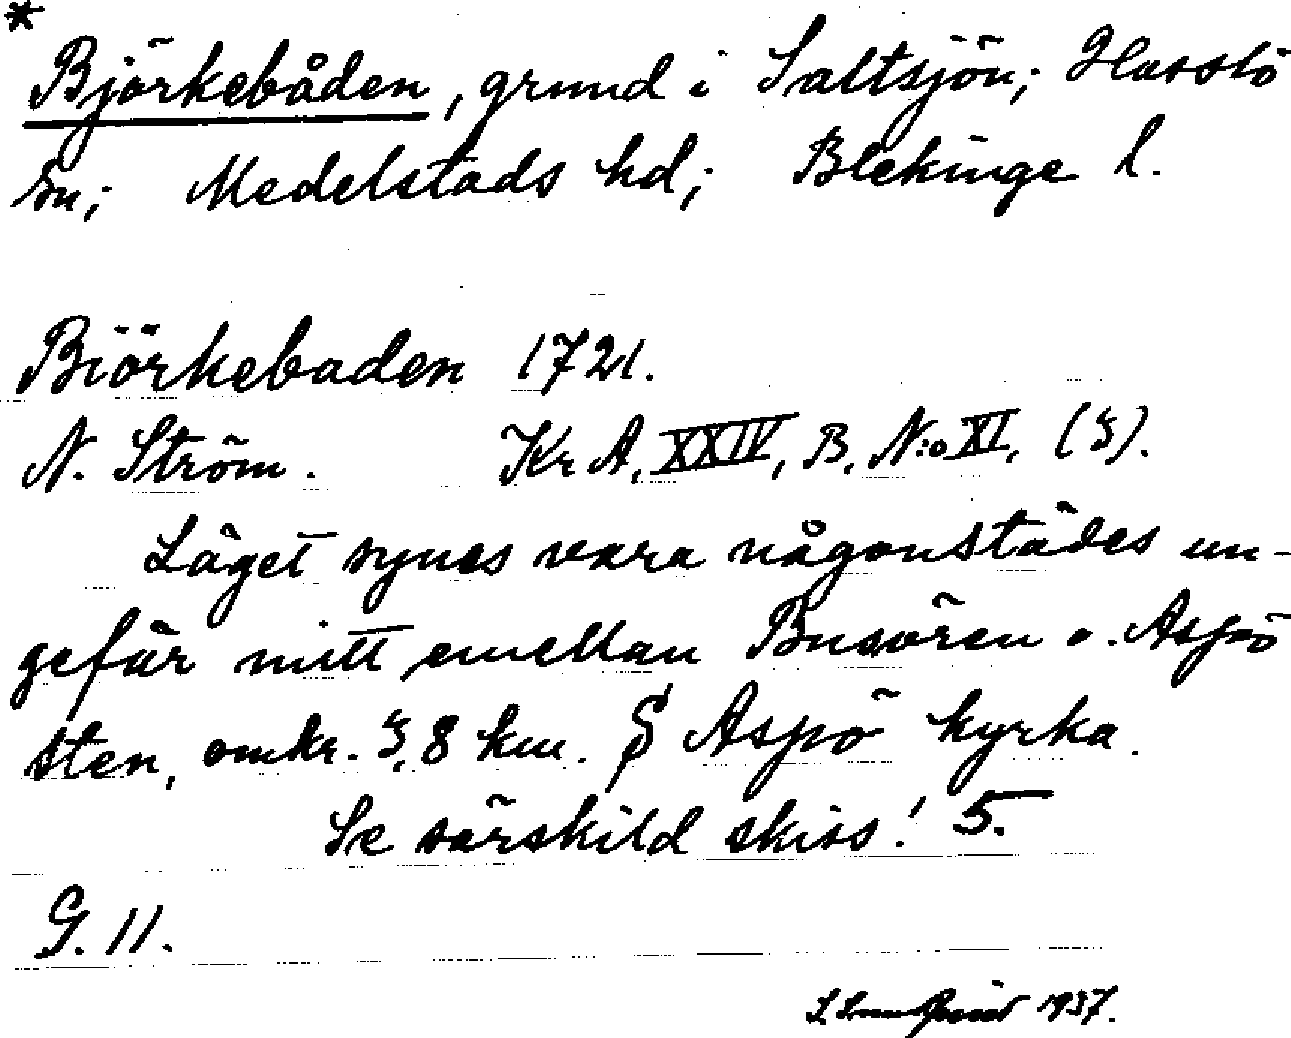 *
Björkebåden, grund i Saltsjön; Hasslö
sn; Medelstads hd; Blekinge l.
Biörkebaden 1721.
N. Ström. Kr A, XXIV, B. N:o XI, (3).
Läget synes vara någonstädes un-
gefär mitt emellan Busören o. Aspö
sten, omkr. 3,8 km. S Aspö kyrka.
Se särskild skiss! 5.
G. 11.
1937.